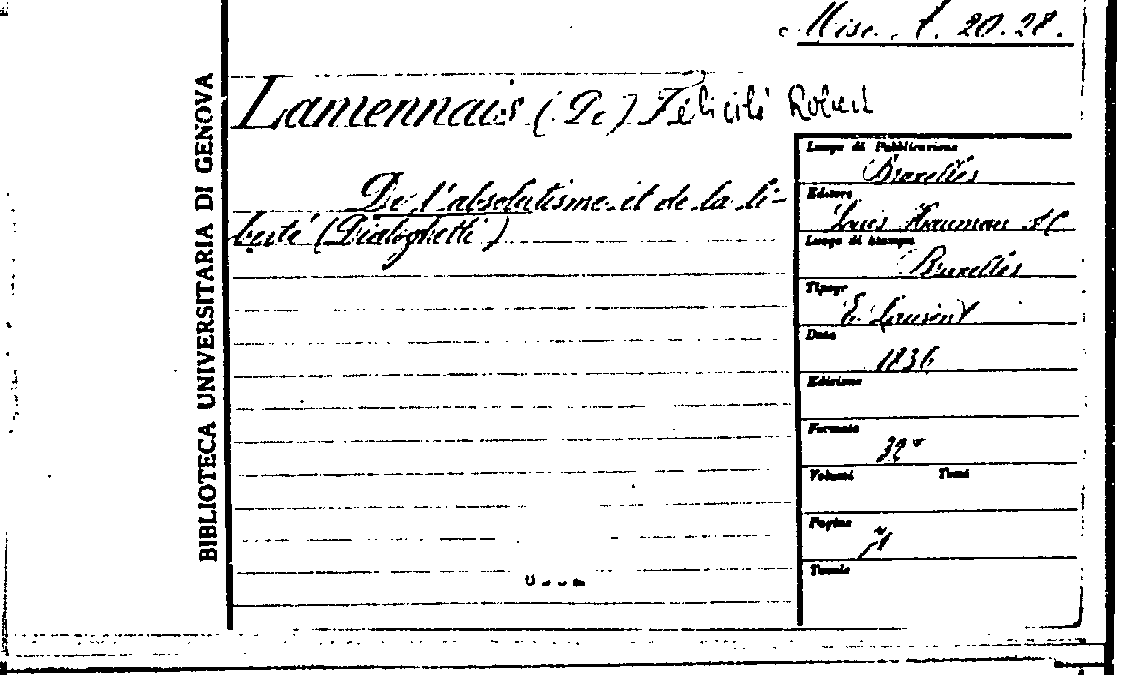 Misc. A. 20.28.
BIBLIOTECA UNIVERSITARIA DI GENOVA
Lamennais (De) Félicité Robert
De l'absolutisme et de la li-
berté (Dialoghetti)
Luogo di Pubblicazione
Bruxelles
Editore
Louis Hauman et C
Luogo di stampa
Bruxelles
Tipogr
E. Laurent
Data
1836
Edizione
Formato
32°
Volumi Tomi
Pagine
Tavole